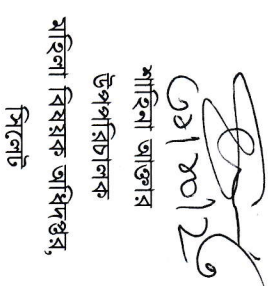 শাহিনা আক্তার
উপপরিচালক
মহিলা বিষয়ক অধিদপ্তর,
সিলেট